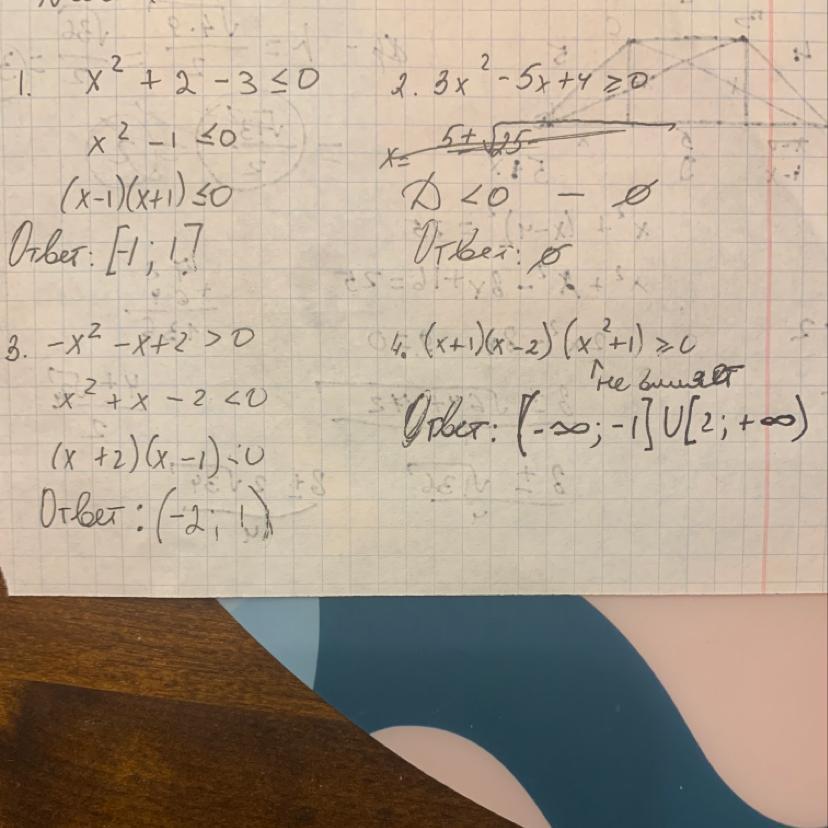 1. x² + 2 - 3 ≤ 0
x² - 1 ≤ 0
(x-1)(x+1) ≤ 0
Ответ: [-1; 1]
2. 3x² - 5x + 4 ≥ 0
x = 5 ± √25
D < 0 — ∅
Ответ: ∅
3. -x² - x + 2 > 0
x² + x - 2 < 0
(x + 2)(x - 1) < 0
Ответ: (-2; 1)
4. (x+1)(x-2)(x²+1) ≥ 0
не влияет
Ответ: [-∞; -1] U [2; +∞)